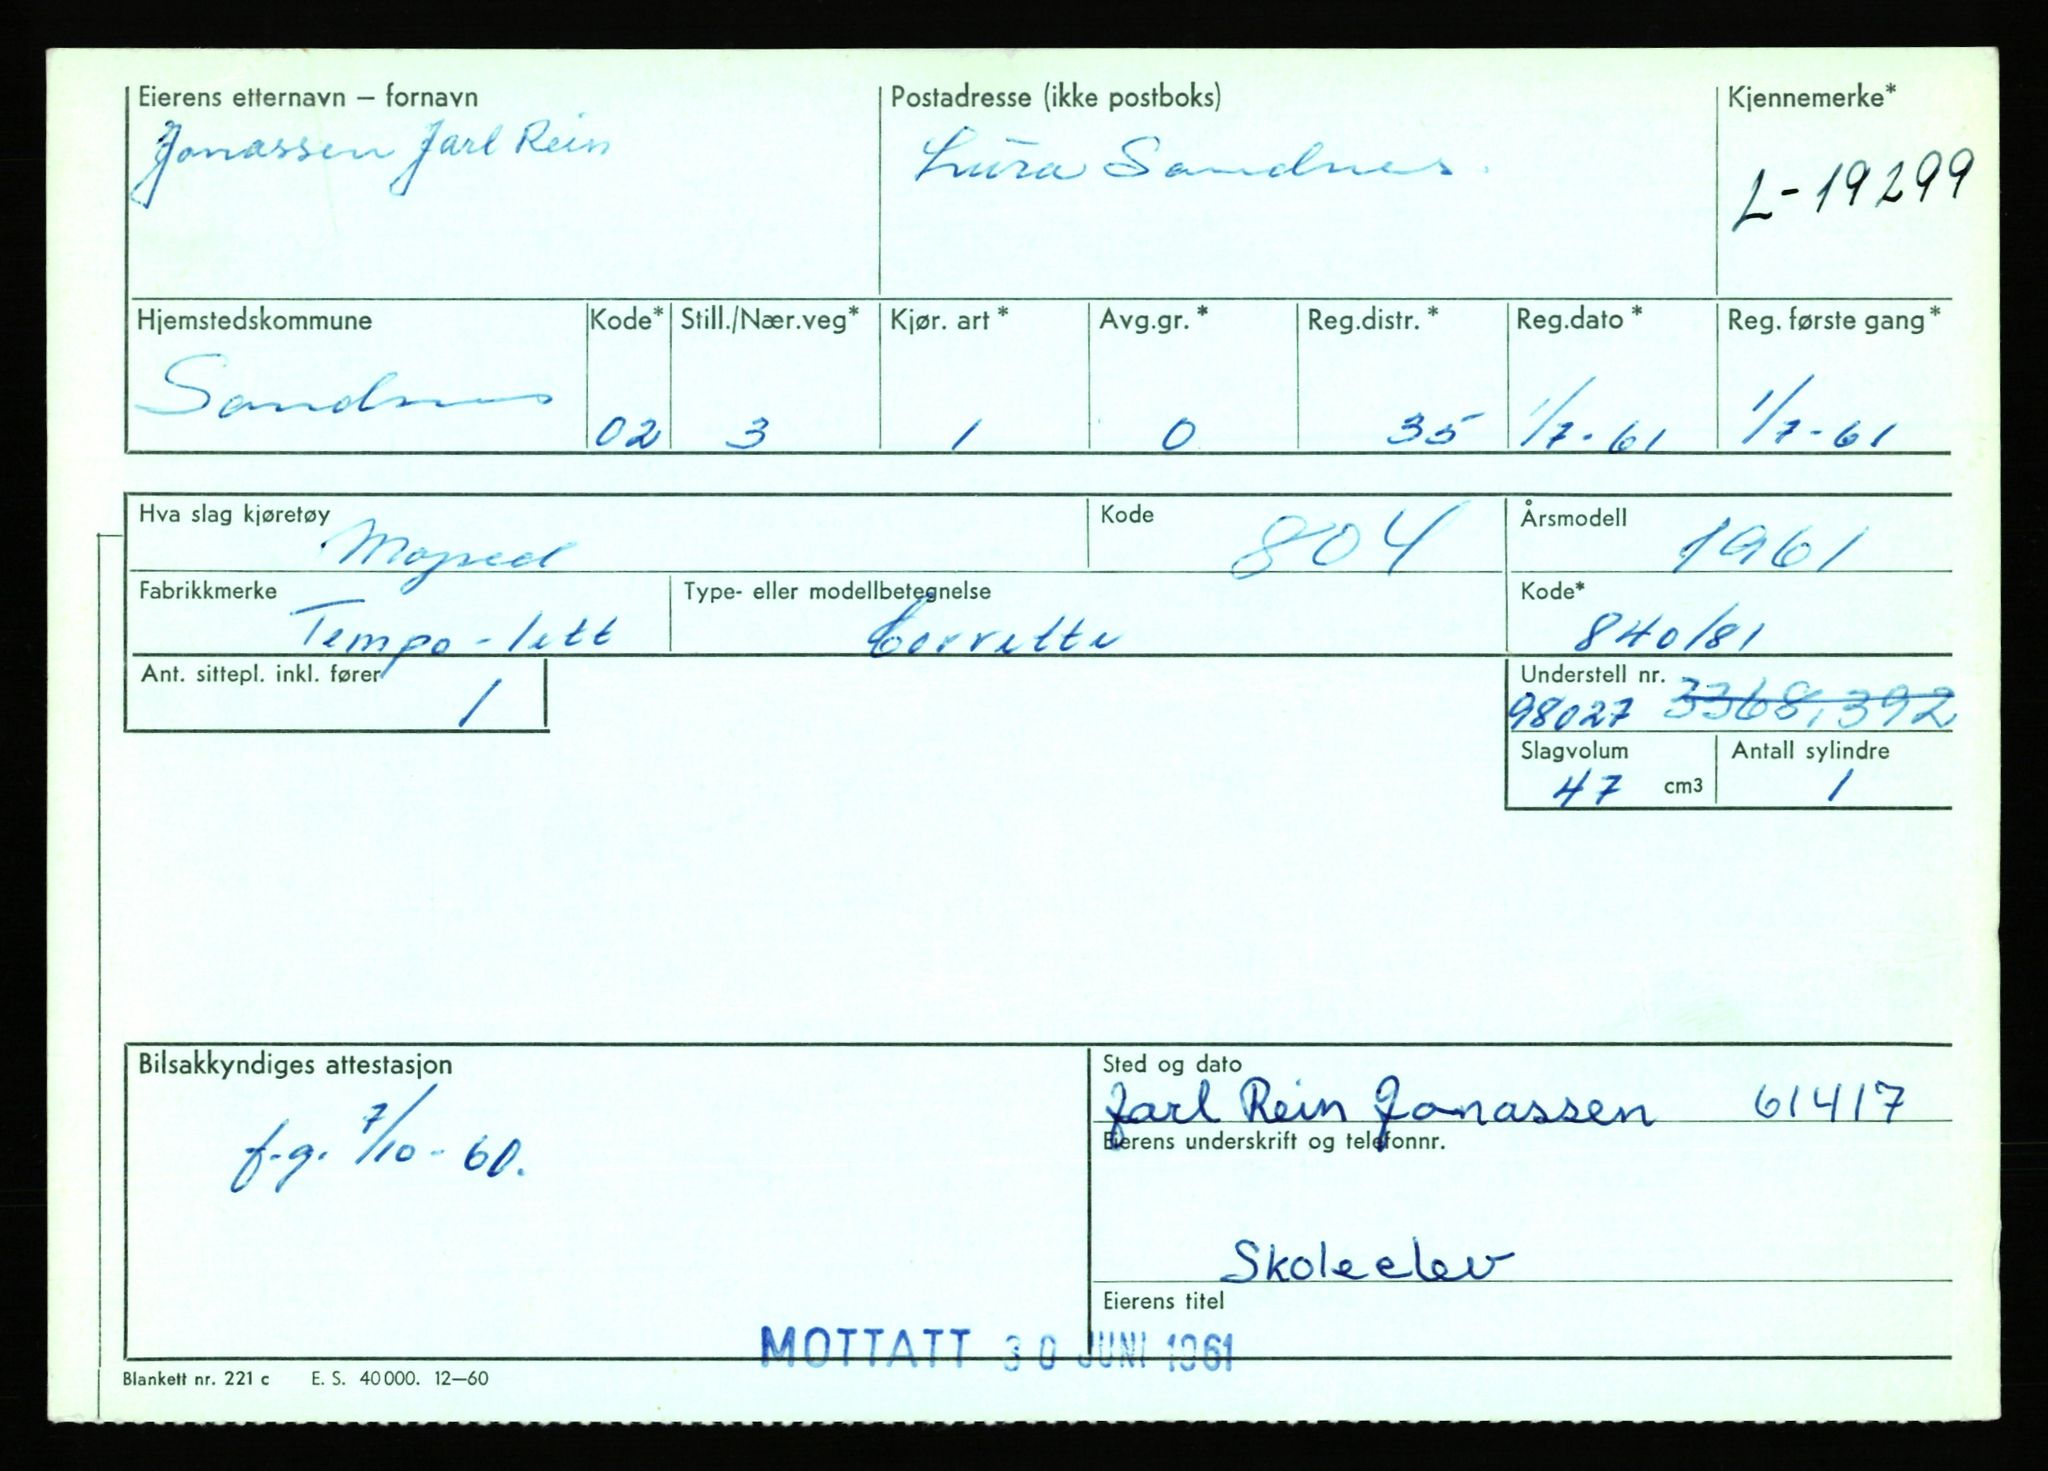 Eierens etternavn – fornavn Postadresse (ikke postboks) Kjennemerke*
Jonassen Jarl Rein Lura Sandnes. L-19299
Hjemstedskommune Kode* Still./Nær.veg* Kjør. art * Avg.gr. * Reg.distr. * Reg.dato * Reg. første gang*
Sandnes 02 3 1 0 35 1/7-61 1/7-61
Hva slag kjøretøy Kode Årsmodell
Moped 804 1961
Fabrikkmerke Type- eller modellbetegnelse Kode*
Tempo-lett Corvette 840/81
Ant. sittepl. inkl. fører Understell nr.
1 98027 3368,392
Slagvolum Antall sylindre
47 cm3 1
Bilsakkyndiges attestasjon Sted og dato
f.g. 7/10-60. Jarl Rein Jonassen 61417
Eierens underskrift og telefonnr.
Skoleelev
Eierens titel
MOTTATT 30 JUNI 1961
Blankett nr. 221 c E. S. 40 000. 12—60